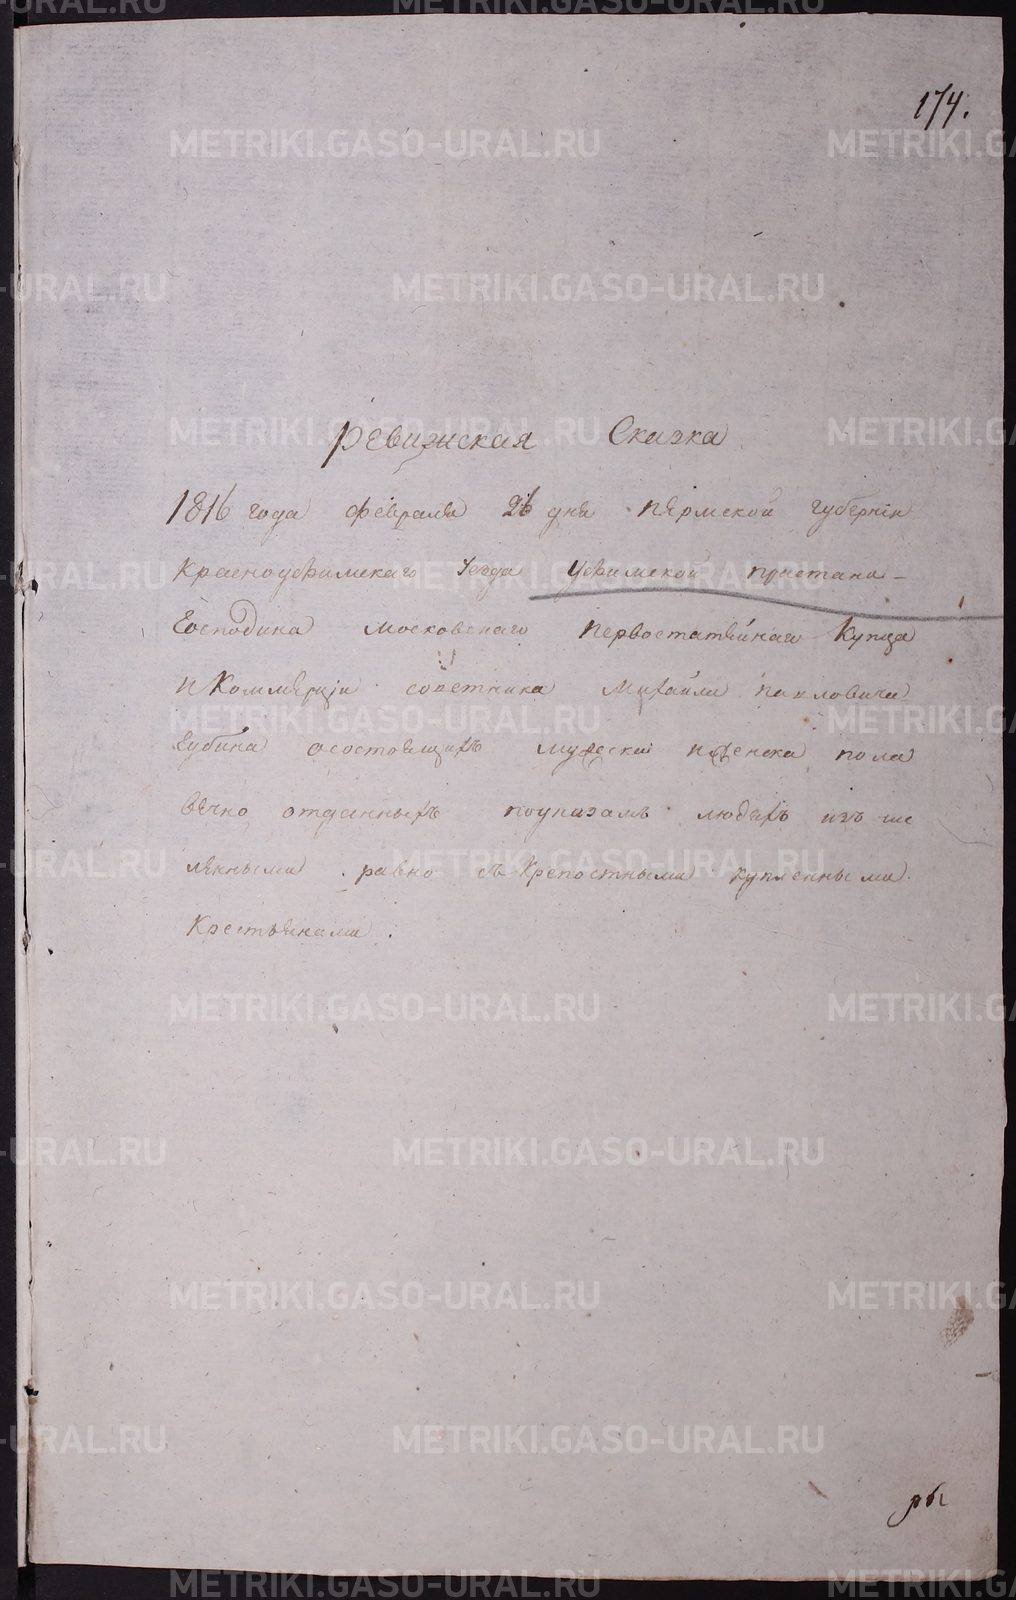 174.
Ревижская Сказка
1816 года февраля 26 дня Пермской губернiи
Красноуфимскаго уезда Уфимской пристани
Господина московскаго первостатейнаго Купца
и Коммерцiи советника Михайли Павловича
Губина осостоящихъ мужеска и женска пола
вечно отданныхъ поуказамъ людехъ изъ ше
лянными равно съ Крепостными купленными
Крестьянами.
METRIKI.GASO-URAL.RU